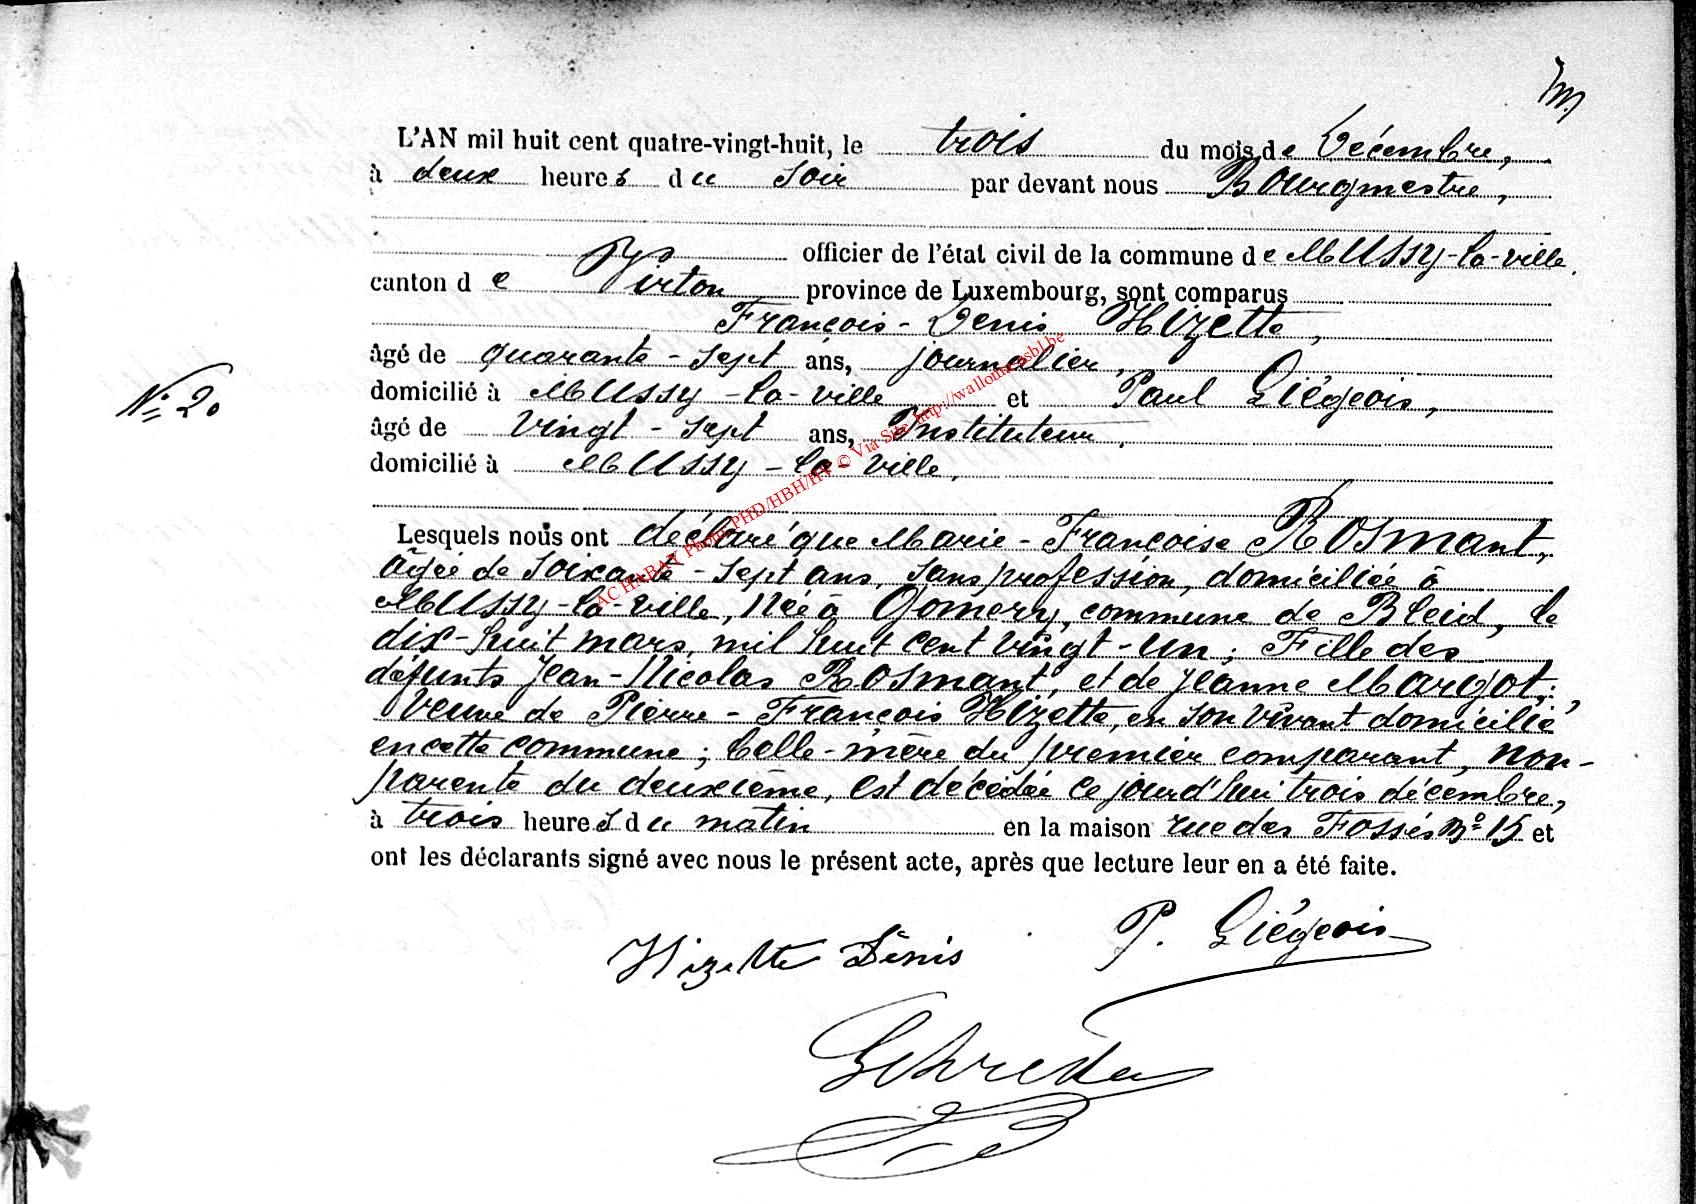 L'AN mil huit cent quatre-vingt-huit, le trois du mois de Décembre,
à deux heures du soir par devant nous Bourgmestre,
officier de l'état civil de la commune de Mussy-la-ville,
canton de Virton province de Luxembourg, sont comparus
François-Denis Hizette,
âgé de quarante-sept ans, journalier,
domicilié à Mussy-la-ville et Paul Liégeois,
N° 20
âgé de vingt-sept ans, Instituteur,
domicilié à Mussy-la-ville,
Lesquels nous ont déclaré que Marie-Françoise Rosmant,
âgée de soixante-sept ans, sans profession, domiciliée à
Mussy-la-ville, née à Gomery, commune de Bleid, le
dix-huit mars, mil huit cent vingt-un; Fille des
défunts Jean-Nicolas Rosmant, et de Jeanne Margot;
Veuve de Pierre-François Hizette, en son vivant domicilié
en cette commune; belle-mère du premier comparant, non-
parente du deuxième, est décédée ce jourd'hui trois décembre,
à trois heures du matin en la maison rue des Fossés N° 15 et
ont les déclarants signé avec nous le présent acte, après que lecture leur en a été faite.
Hizette Dénis P. Liégeois
AC HABAY Photo PHD/HBH/HV © Via Site http://wallonia.asbl.be